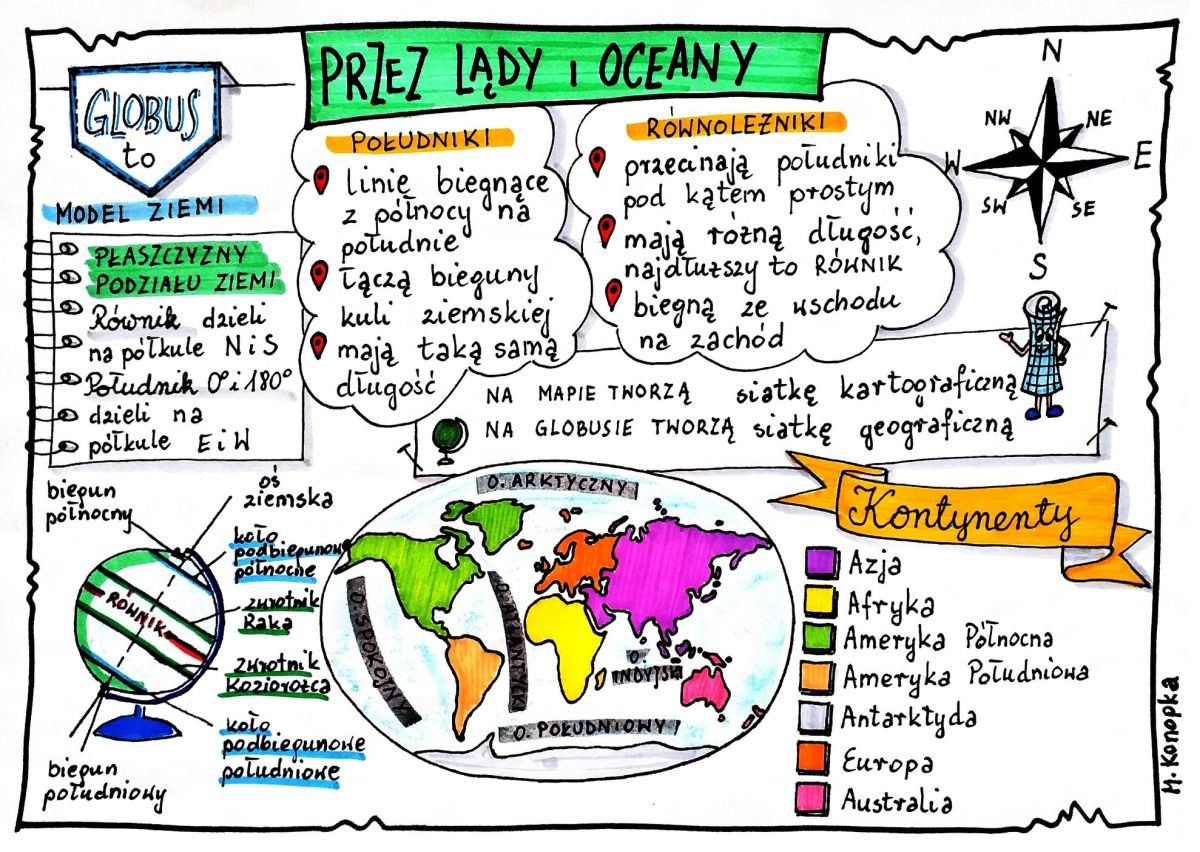 PRZEZ LĄDY i OCEANY
GLOBUS
to
MODEL ZIEMI
PŁASZCZYZNY
PODZIAŁU ZIEMI
Równik dzieli
na półkule N i S
Południk 0° i 180°
dzieli na
półkule E i W
POŁUDNIKI
linie biegnące
z północy na
południe
łączą bieguny
kuli ziemskiej
mają taką samą
długość
RÓWNOLEŻNIKI
przecinają południki
pod kątem prostym
mają różną długość,
najdłuższy to RÓWNIK
biegną ze wschodu
na zachód
N
NW
NE
W
E
SW
SE
S
NA MAPIE TWORZĄ siatkę kartograficzną
NA GLOBUSIE TWORZĄ siatkę geograficzną
biegun
północny
oś
ziemska
koło
podbiegunowe
północne
RÓWNIK
zwrotnik
Raka
zwrotnik
Koziorożca
koło
podbiegunowe
południowe
biegun
południowy
O. ARKTYCZNY
O. SPOKOJNY
O. ATLANTYCKI
O.
INDYJSKI
O. POŁUDNIOWY
Kontynenty
Azja
Afryka
Ameryka Północna
Ameryka Południowa
Antarktyda
Europa
Australia
M. Konopka